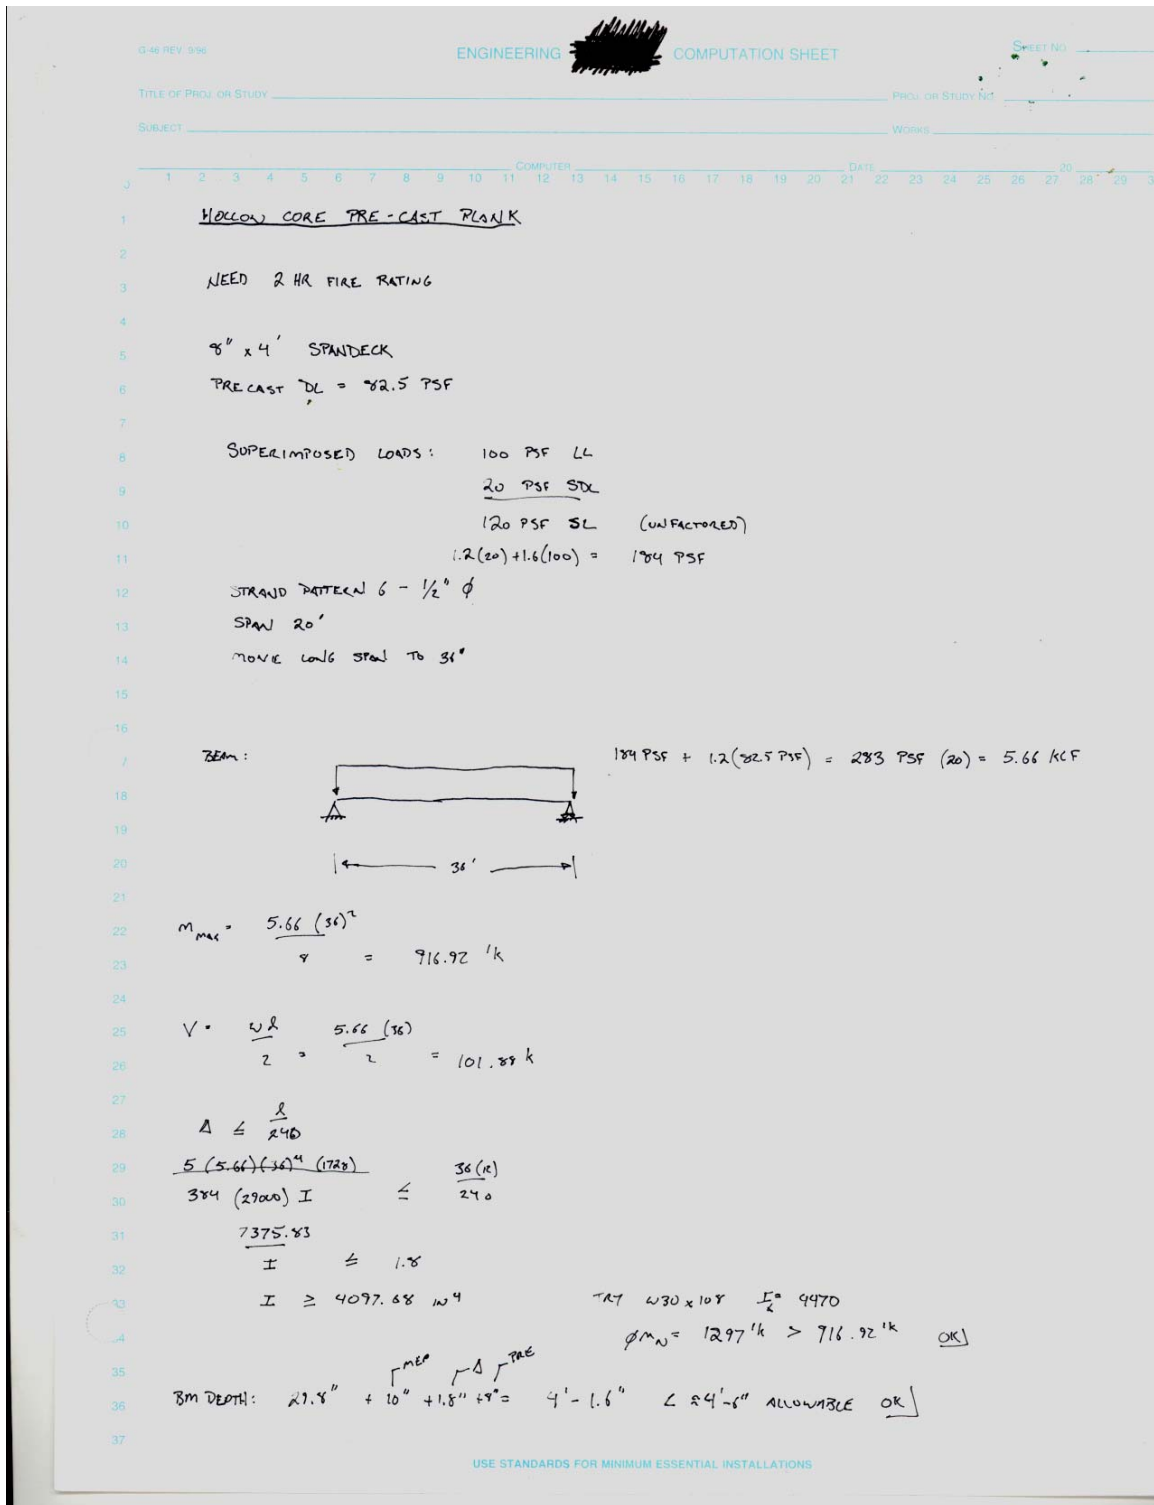 G-46 REV. 9/96
ENGINEERING COMPUTATION SHEET
SHEET NO.
TITLE OF PROJ. OR STUDY PROJ. OR STUDY NO.
SUBJECT WORKS
COMPUTER DATE 20
0 1 2 3 4 5 6 7 8 9 10 11 12 13 14 15 16 17 18 19 20 21 22 23 24 25 26 27 28 29 3
1 HOLLOW CORE PRE-CAST PLANK
2
3 NEED 2 HR FIRE RATING
4
5 8" x 4' SPANDECK
6 PRECAST DL = 82.5 PSF
7
8 SUPERIMPOSED LOADS: 100 PSF LL
9 20 PSF SDL
10 120 PSF SL (UNFACTORED)
11 1.2(20)+1.6(100) = 184 PSF
12 STRAND PATTERN 6 - 1/2" ϕ
13 SPAN 20'
14 MOVIE LONG SPAN TO 36'
15
16
7 BEAM: 184 PSF + 1.2(82.5 PSF) = 283 PSF (20) = 5.66 KLF
18
19
20 36'
21
22 M max = 5.66 (36)²
23 8 = 916.92 'k
24
25 V = wl 5.66 (36)
26 2 = 2 = 101.88 k
27
28 Δ ≤ l/240
29 5 (5.66)(36)⁴ (1728) 36(12)
30 384 (29000) I ≤ 240
31 7375.83
32 I ≤ 1.8
33 I ≥ 4097.68 IN⁴ TRY W30x108 Ix = 4470
34 ϕMN = 1297 'k > 916.92 'k OK
35 MEP Δ PRE
36 BM DEPTH: 29.8" + 10" + 1.8" + 8" = 4'-1.6" < ≈4'-6" ALLOWABLE OK
37
USE STANDARDS FOR MINIMUM ESSENTIAL INSTALLATIONS